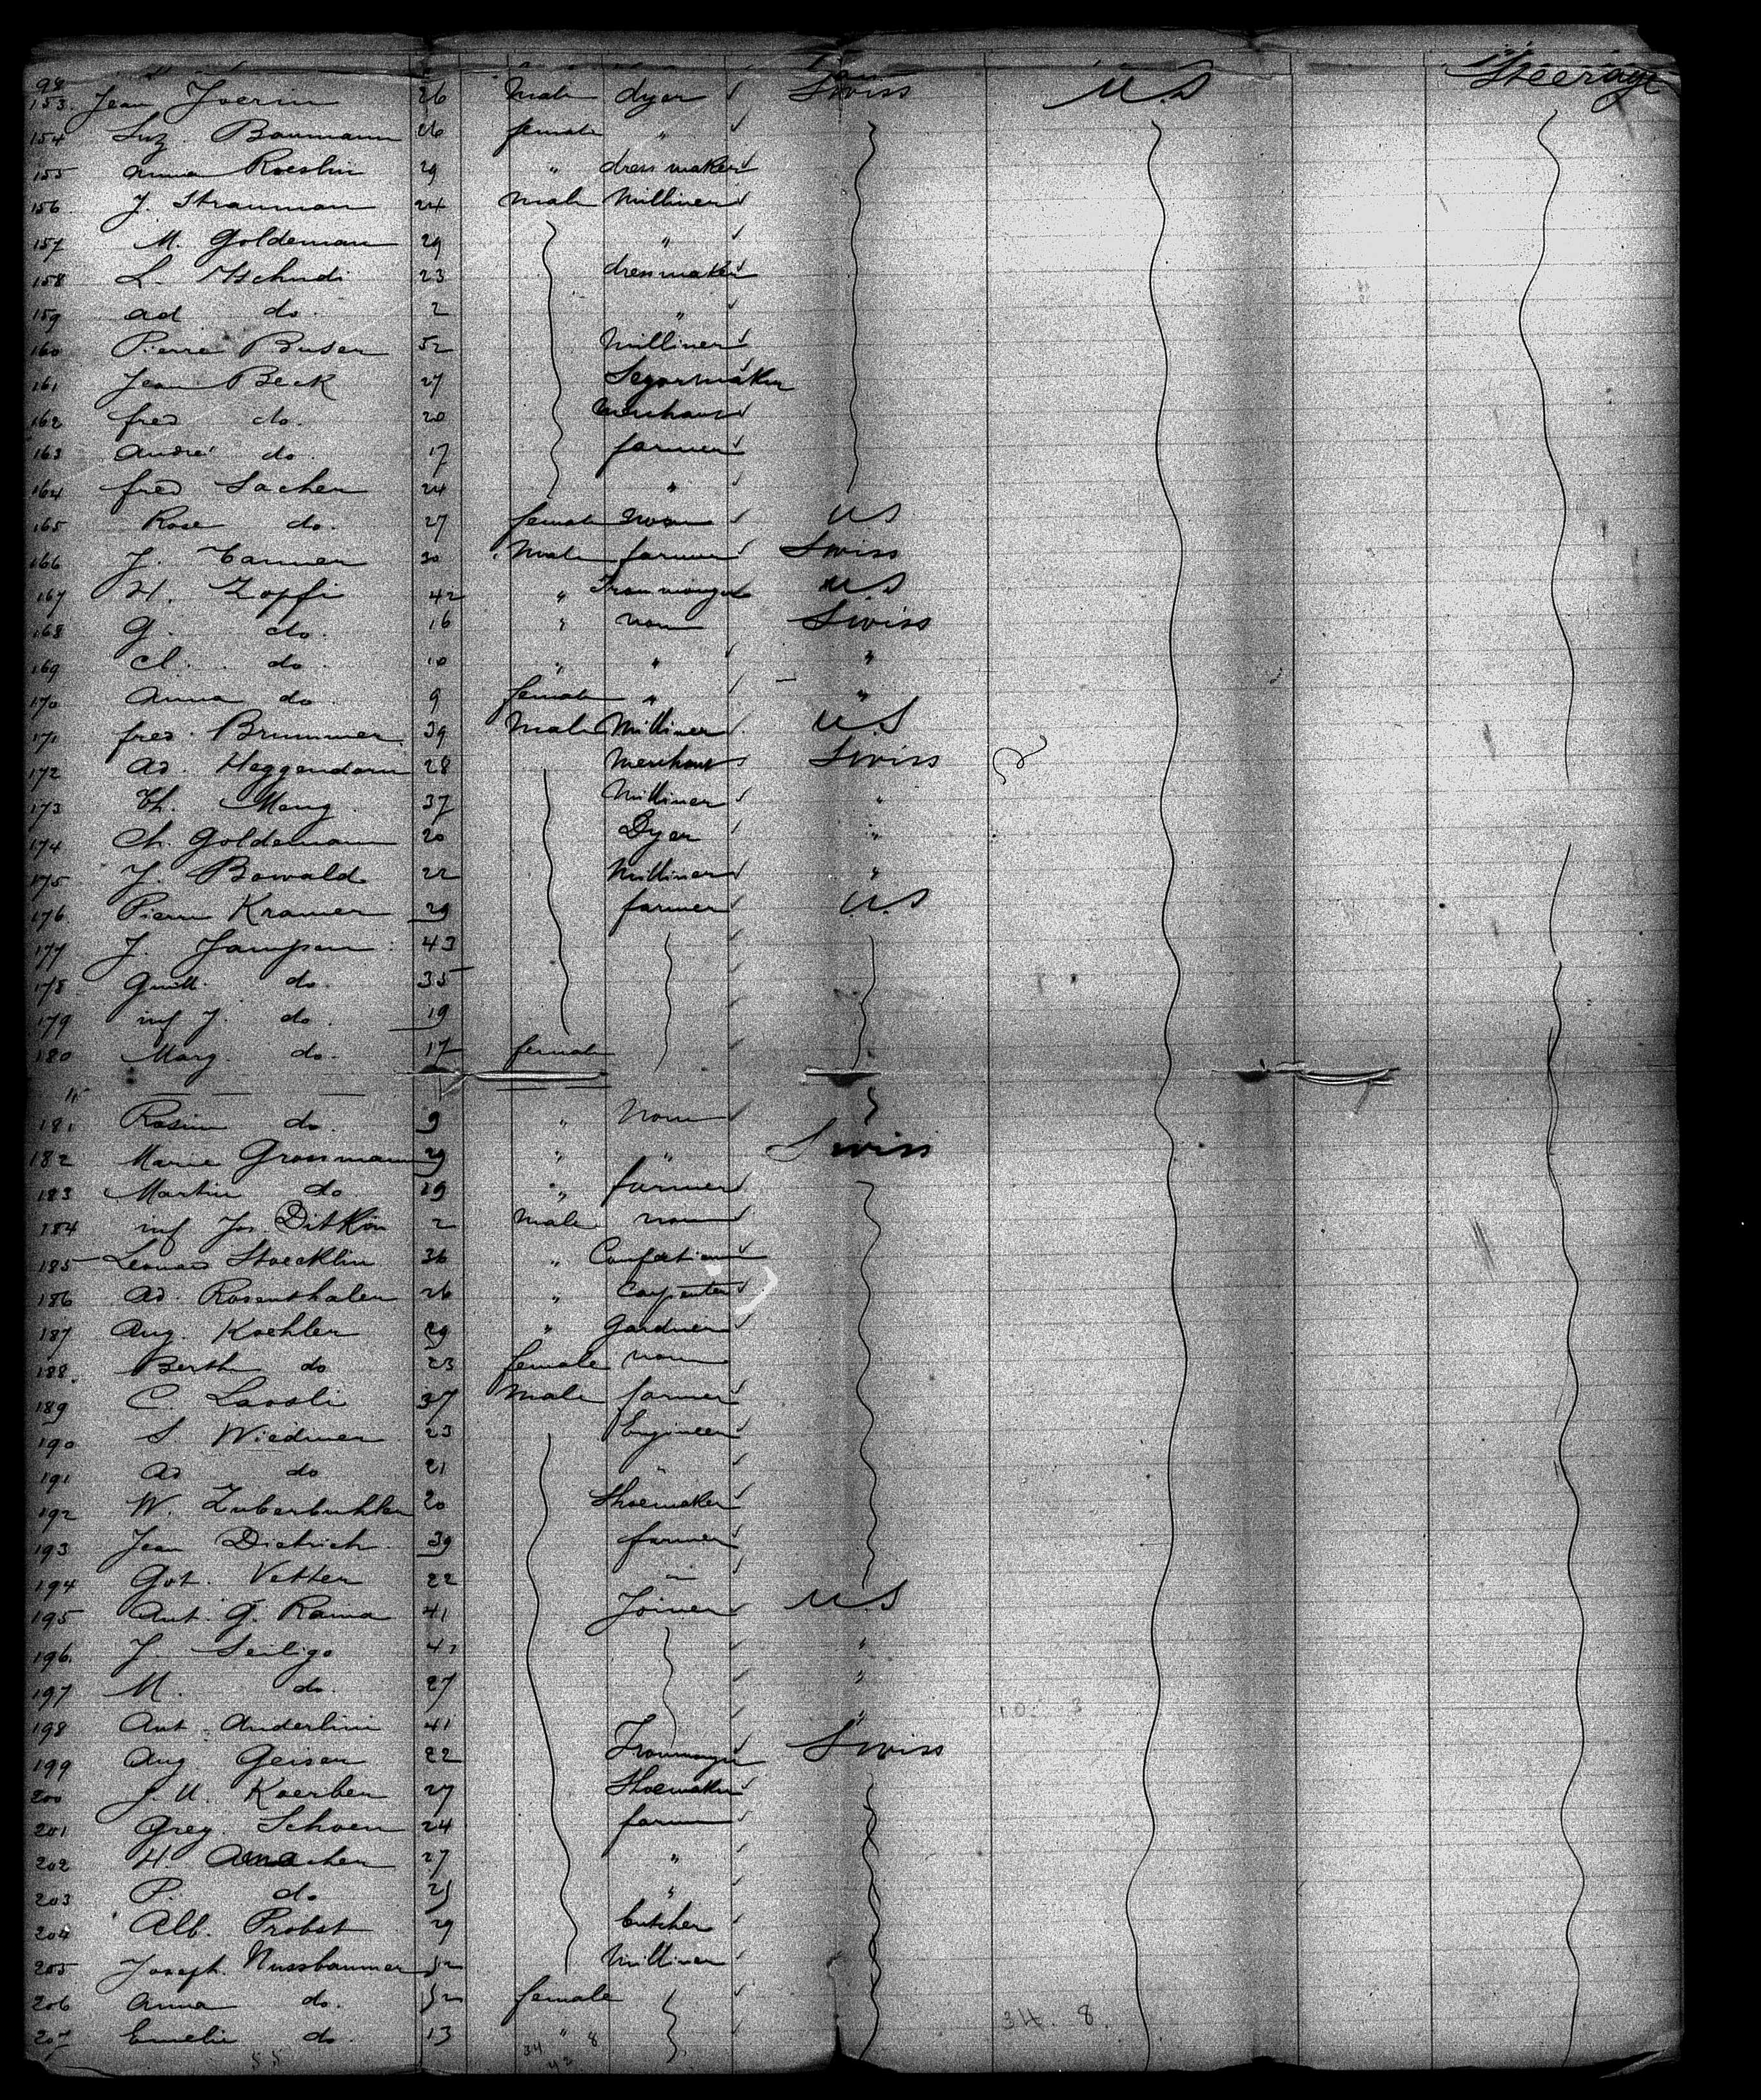 98
Steerage
153. Jean Joerin 26 Male dyer Swiss U.S
154 Suz. Baumann 26 female "
155 Anna Roeslin 29 " dress maker
156 J. Strauman 24 Male Milliner
157 M. Goldeman 29 "
158 L. Tschudi 23 dressmaker
159 ad do. 2 "
160 Pierre Buser 52 Milliner
161 Jean Beck 27 Segarmaker
162 fred do. 20 Merchant
163 André do 17 farmer
164 fred Sacher 24 "
165 Rose do. 27 female none US
166 J. Tanner 30 Male farmer Swiss
167 H. Zopfi 42 " Ironmonger US
168 G. do. 16 " non Swiss
169 Cl. do. 10 " " "
170 Anna do 9 female " "
171 fred. Brummer 39 Male Milliner U.S
172 Ad. Heggendorn 28 Merchant Swiss
173 Th. Mang 37 Milliner "
174 Ch. Goldemann 20 Dyer "
175 J. Bowald 22 Milliner "
176. Pierre Kramer 29 farmer U.S
177 J. Jampen 43
178 Guill. do. 35
179 inf J. do. 19
180 Marg. do. 17 female
181 Rosine do. 9 " Non
182 Marie Grossmann 29 " " Swiss
183 Martin do 19 " farmer
184 inf Jos. 2 Male non
185 Leonard Stoecklin 36 "
186 Ad. Rosenthaler 26 " Carpenter
187 Aug. Koehler 29 " Gardner
188. Berth do 23 female non
189 C. Lassli 37 Male farmer
190 S Wiedmer 23 Engineer
191 Ad do 21 "
192 W. Zuberbuhler 20 Shoemaker
193 Jean Dietrich 39 farmer
194 Got. Vetter 22 "
195 Ant. G. Raina 41 Joiner U.S
196. J. Seiligo "
197 M. do. 27 "
198 Ant. Anderlini 41 "
199 Aug Geiser 22 Ironmonger Swiss
200 J. U. Koerber 27 Shoemaker
201 Greg. Schoen 24 farm
202 H. Amacher 27 "
203 P. do "
204 Alb. Probst 29 butcher
205 Joseph. Nussbaumer 52 Milliner
206 Anna do. 52 female
207 Emelie do 13 "
34 8
42
55
34. 8.